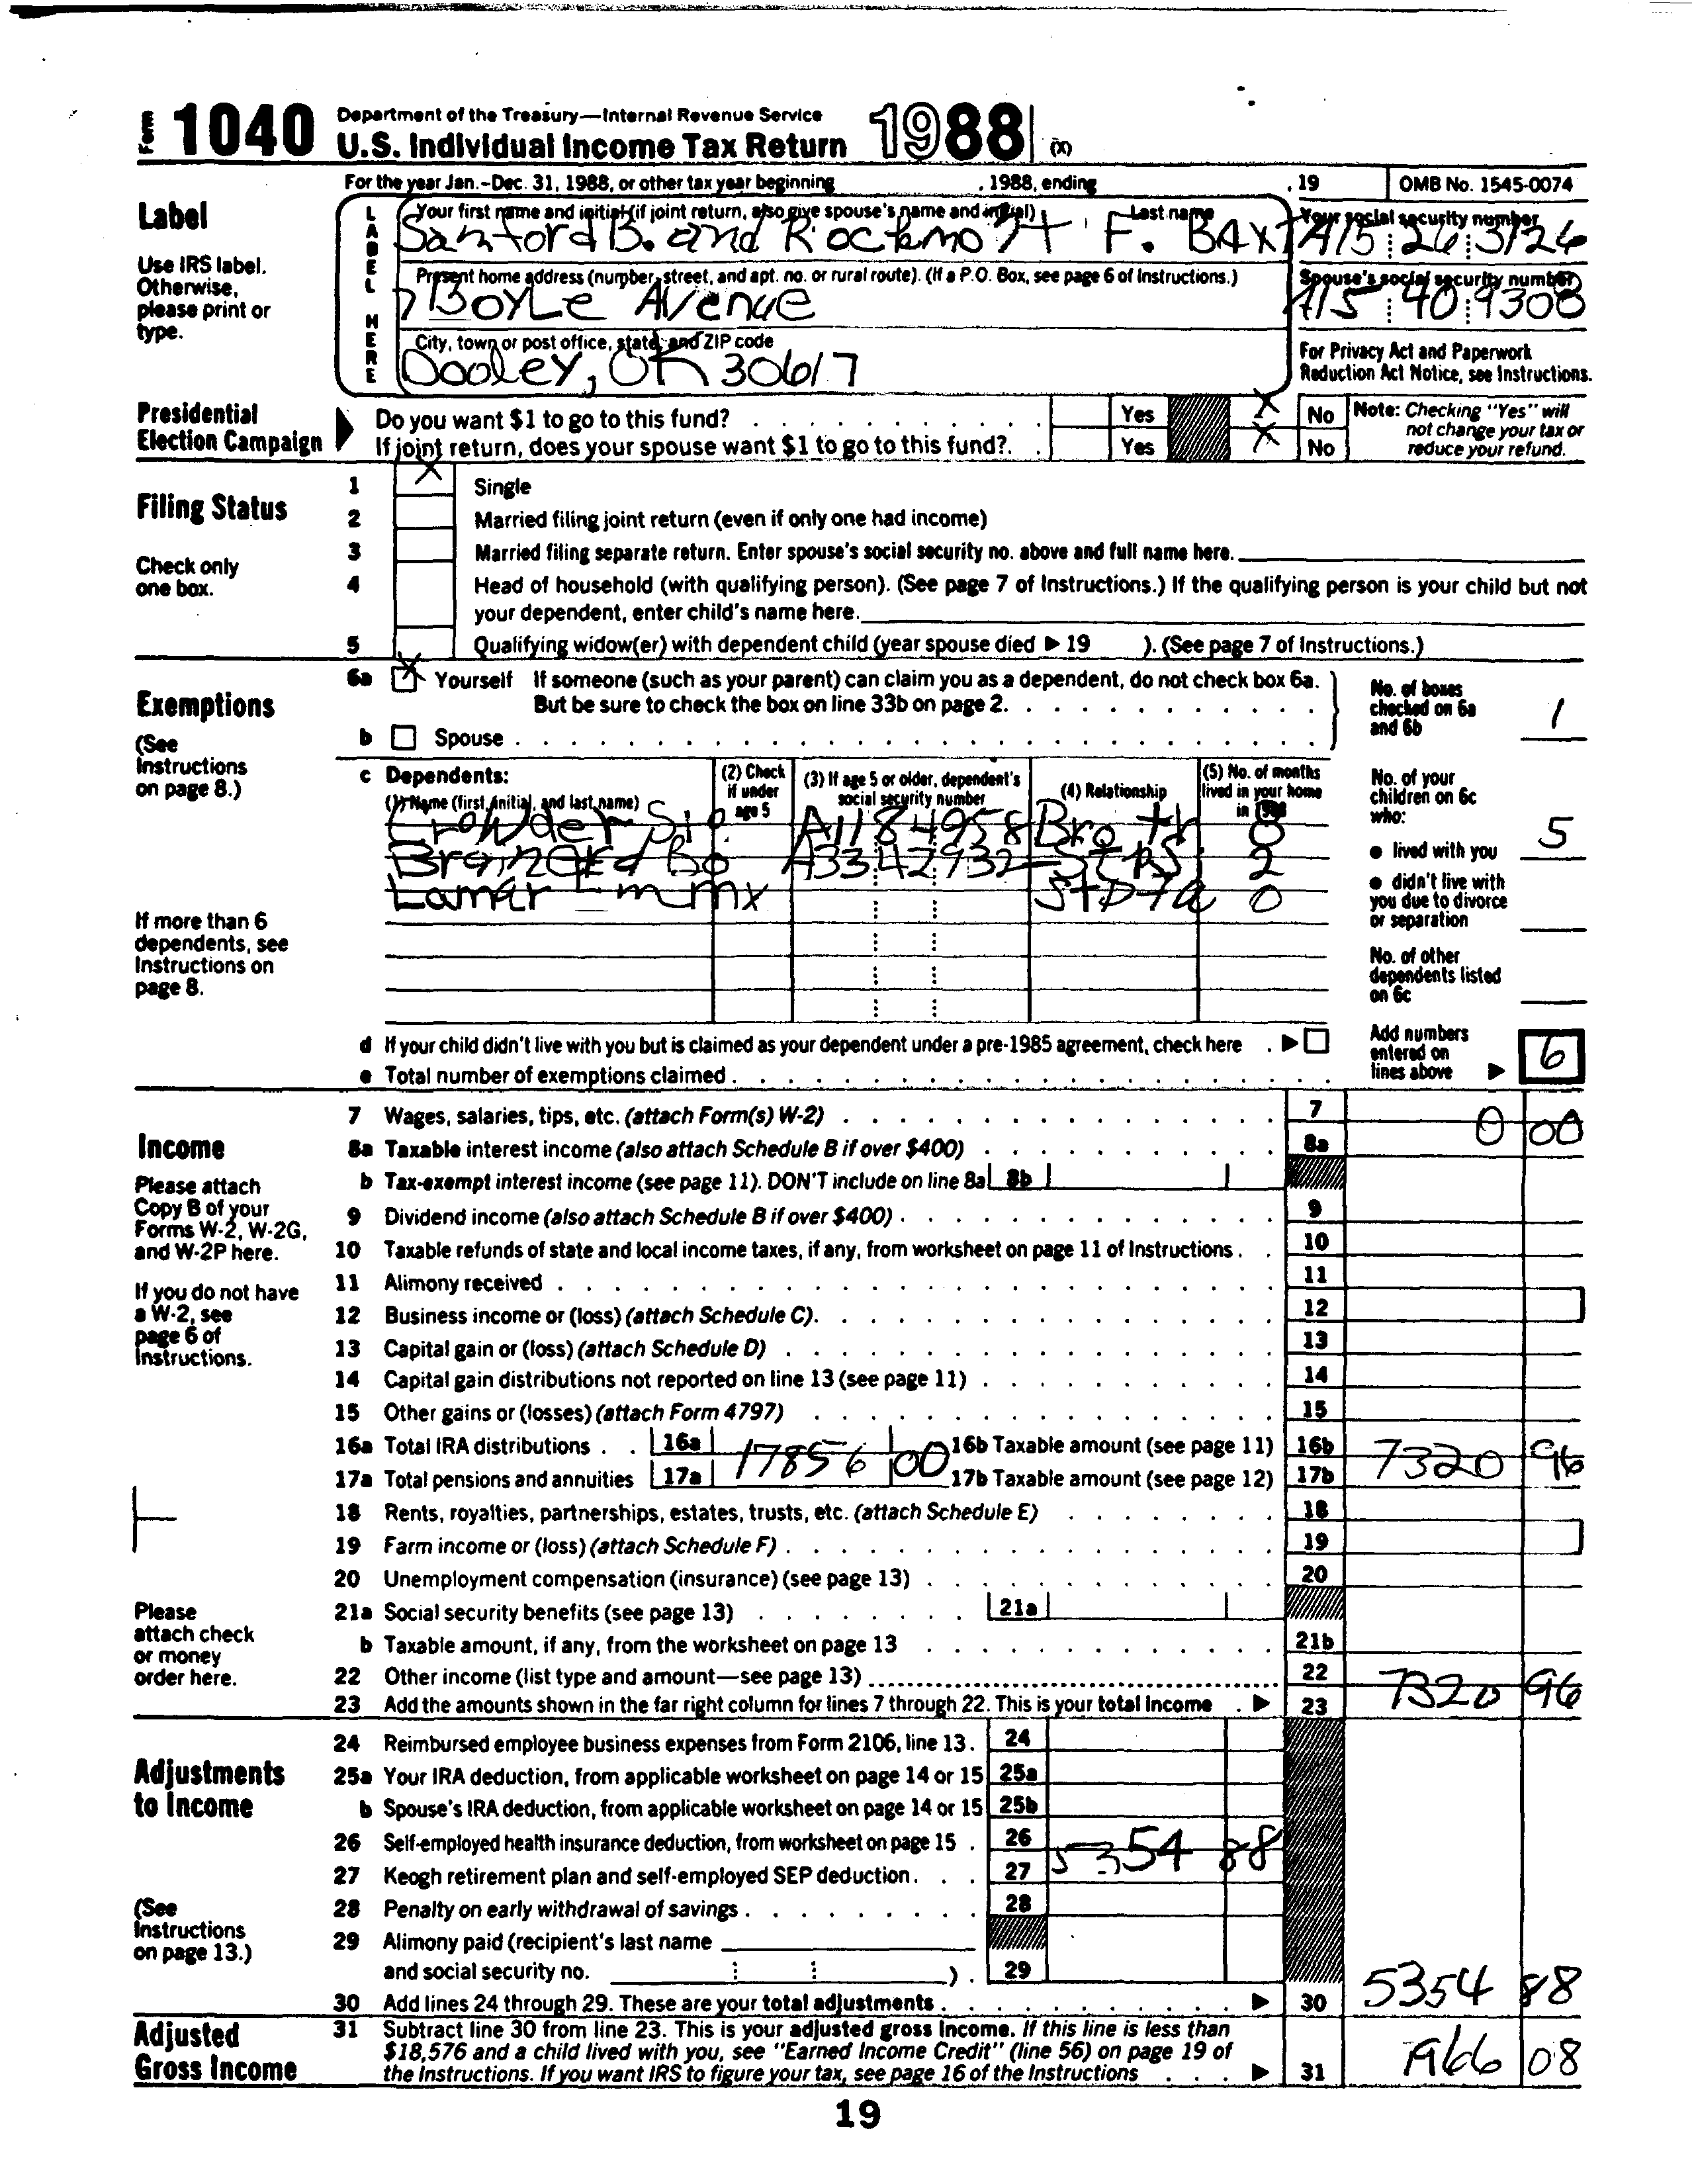 Form 1040 Department of the Treasury—Internal Revenue Service
U.S. Individual Income Tax Return 1988 (X)
For the year Jan.-Dec. 31, 1988, or other tax year beginning , 1988, ending , 19 OMB No. 1545-0074
Label
Use IRS label. Otherwise, please print or type.
LABEL HERE
Your first name and initial (if joint return, also give spouse's name and initial) Last name
Sanford B. and Rockmo F. BAXT
Your social security number
A15 26 3126
Present home address (number, street, and apt. no. or rural route). (If a P.O. Box, see page 6 of Instructions.)
7 Boyle Avenue
Spouse's social security number
A15 40 9308
City, town or post office, state, and ZIP code
Dooley, OK 30617
For Privacy Act and Paperwork Reduction Act Notice, see Instructions.
Presidential Election Campaign
Do you want $1 to go to this fund? Yes X No
If joint return, does your spouse want $1 to go to this fund?. Yes X No
Note: Checking "Yes" will not change your tax or reduce your refund.
Filing Status
Check only one box.
1 X Single
2 Married filing joint return (even if only one had income)
3 Married filing separate return. Enter spouse's social security no. above and full name here.
4 Head of household (with qualifying person). (See page 7 of Instructions.) If the qualifying person is your child but not
your dependent, enter child's name here.
5 Qualifying widow(er) with dependent child (year spouse died ▶ 19 ). (See page 7 of Instructions.)
Exemptions
(See Instructions on page 8.)
6a X Yourself If someone (such as your parent) can claim you as a dependent, do not check box 6a.
But be sure to check the box on line 33b on page 2.
b Spouse
No. of boxes checked on 6a and 6b 1
c Dependents:
(1) Name (first, initial, and last name)
(2) Check if under age 5
(3) If age 5 or older, dependent's social security number
(4) Relationship
(5) No. of months lived in your home in 1988
Crowder Sip A11 84 958 Broth 0
Brainard Bo A33 42 932 0 2
Lamar Emmx 0
If more than 6 dependents, see Instructions on page 8.
No. of your children on 6c who:
● lived with you 5
● didn't live with you due to divorce or separation
No. of other dependents listed on 6c
d If your child didn't live with you but is claimed as your dependent under a pre-1985 agreement, check here ▶
e Total number of exemptions claimed
Add numbers entered on lines above ▶ 6
Income
Please attach Copy B of your Forms W-2, W-2G, and W-2P here.
If you do not have a W-2, see page 6 of Instructions.
Please attach check or money order here.
7 Wages, salaries, tips, etc. (attach Form(s) W-2) 7 0 00
8a Taxable interest income (also attach Schedule B if over $400) 8a
b Tax-exempt interest income (see page 11). DON'T include on line 8a 8b
9 Dividend income (also attach Schedule B if over $400) 9
10 Taxable refunds of state and local income taxes, if any, from worksheet on page 11 of Instructions 10
11 Alimony received 11
12 Business income or (loss) (attach Schedule C) 12
13 Capital gain or (loss) (attach Schedule D) 13
14 Capital gain distributions not reported on line 13 (see page 11) 14
15 Other gains or (losses) (attach Form 4797) 15
16a Total IRA distributions 16a 16b Taxable amount (see page 11) 16b
17a Total pensions and annuities 17a 17856 00 17b Taxable amount (see page 12) 17b 7320 96
18 Rents, royalties, partnerships, estates, trusts, etc. (attach Schedule E) 18
19 Farm income or (loss) (attach Schedule F) 19
20 Unemployment compensation (insurance) (see page 13) 20
21a Social security benefits (see page 13) 21a
b Taxable amount, if any, from the worksheet on page 13 21b
22 Other income (list type and amount—see page 13) 22
23 Add the amounts shown in the far right column for lines 7 through 22. This is your total income ▶ 23 7320 96
Adjustments to Income
(See Instructions on page 13.)
24 Reimbursed employee business expenses from Form 2106, line 13. 24
25a Your IRA deduction, from applicable worksheet on page 14 or 15 25a
b Spouse's IRA deduction, from applicable worksheet on page 14 or 15 25b
26 Self-employed health insurance deduction, from worksheet on page 15 26
27 Keogh retirement plan and self-employed SEP deduction 27 5354 88
28 Penalty on early withdrawal of savings 28
29 Alimony paid (recipient's last name
and social security no. ) 29
30 Add lines 24 through 29. These are your total adjustments ▶ 30 5354 88
Adjusted Gross Income
31 Subtract line 30 from line 23. This is your adjusted gross income. If this line is less than
$18,576 and a child lived with you, see "Earned Income Credit" (line 56) on page 19 of
the Instructions. If you want IRS to figure your tax, see page 16 of the Instructions ▶ 31 1966 08
19